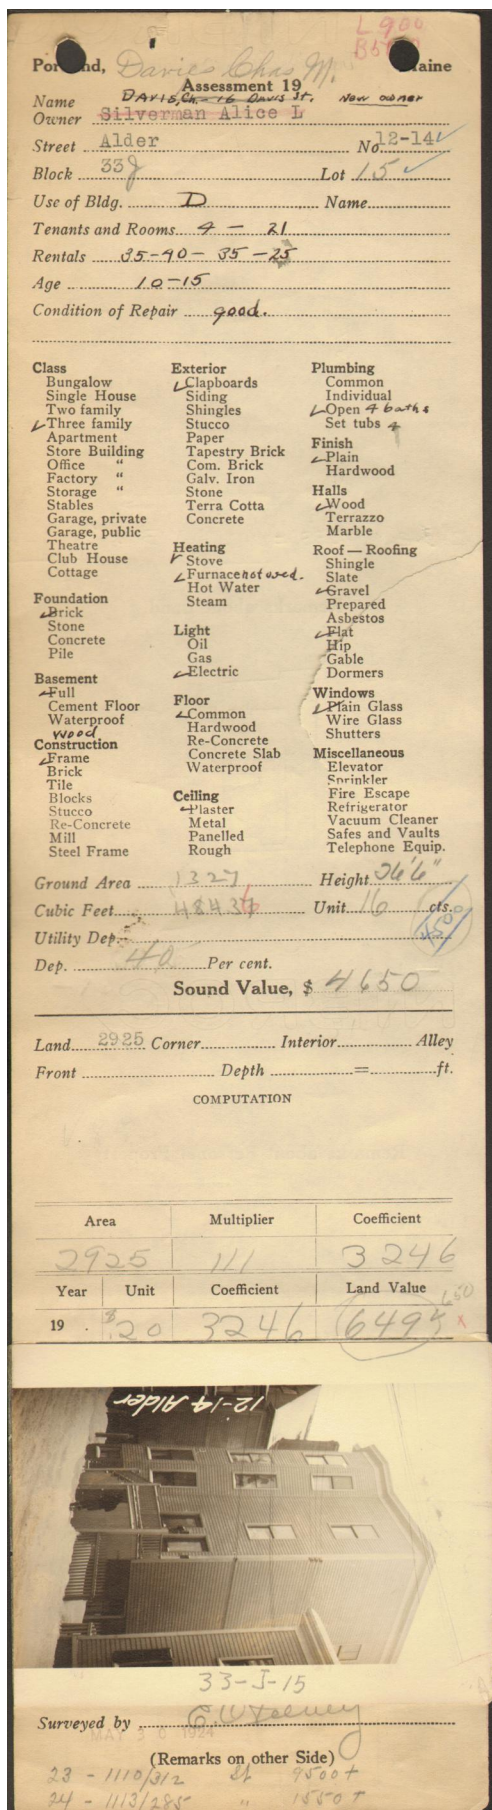 L 900
Portland, Davis Chas M. Maine
Assessment 19
DAVIS, Ch - 16 Davis St. New owner
Name
Owner Silverman Alice L
Street Alder No 12-14 ✓
Block 33J Lot 15 ✓
Use of Bldg. D Name
Tenants and Rooms 4 - 21
Rentals 35-40- 35 -25
Age 10-15
Condition of Repair good.
Class
Bungalow
Single House
Two family
✓ Three family
Apartment
Store Building
Office "
Factory "
Storage "
Stables
Garage, private
Garage, public
Theatre
Club House
Cottage
Foundation
✓ Brick
Stone
Concrete
Pile
Basement
✓ Full
Cement Floor
Waterproof
wood
Construction
✓ Frame
Brick
Tile
Blocks
Stucco
Re-Concrete
Mill
Steel Frame
Exterior
✓ Clapboards
Siding
Shingles
Stucco
Paper
Tapestry Brick
Com. Brick
Galv. Iron
Stone
Terra Cotta
Concrete
Heating
✓ Stove
✓ Furnace not used.
Hot Water
Steam
Light
Oil
Gas
✓ Electric
Floor
✓ Common
Hardwood
Re-Concrete
Concrete Slab
Waterproof
Ceiling
✓ Plaster
Metal
Panelled
Rough
Plumbing
Common
Individual
✓ Open 4 baths
Set tubs 4
Finish
✓ Plain
Hardwood
Halls
✓ Wood
Terrazzo
Marble
Roof — Roofing
Shingle
Slate
✓ Gravel
Prepared
Asbestos
✓ Flat
Hip
Gable
Dormers
Windows
✓ Plain Glass
Wire Glass
Shutters
Miscellaneous
Elevator
Sprinkler
Fire Escape
Refrigerator
Vacuum Cleaner
Safes and Vaults
Telephone Equip.
Ground Area 1327 Height 36'6"
Cubic Feet Unit 16 cts.
Utility Dep.
Dep. 40 Per cent.
Sound Value, $ 4650
Land 2925 Corner Interior Alley
Front Depth = ft.
COMPUTATION
Area Multiplier Coefficient
2925 111 3246
Year Unit Coefficient Land Value
650
19 . $.20 3246 649
12-14 Alder
33-J-15
Surveyed by
1924
(Remarks on other Side)
23 - 1110/312 St 9500+
24 - 1131/285 " 1550+